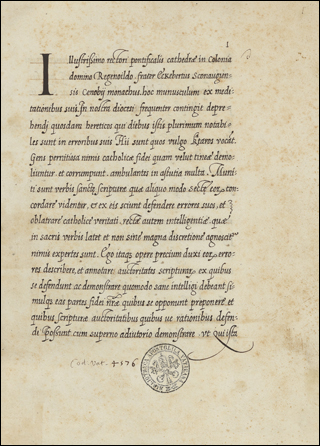 1
Illustrissimo rectori pontificalis cathedrę in Colonia
domino Regenoldo. frater Eckebertus Sconaugen-
sis Cenobij monachus. hoc munusculum ex medi
tationibus suis. In nostra diocesi frequenter contingit depre-
hendj quosdam hereticos qui diebus istis plurimum notabi-
les sunt in erroribus suis. Hii sunt quos vulgo Kataros vocant.
Gens pernitiosa nimis catholicę fidei quam velut tineę demo-
liuntur, et corrumpunt. ambulantes in astutia multa. Muni-
ti sunt verbis sanctę scripturę quę aliquo modo sectis eor. con-
cordare videntur, et ex eis sciunt defendere errores suos, et
oblatrare catholicę veritati. rectę autem intelligentię quę
in sacris verbis latet et non sine magna discretione agnoscit
nimis expertes sunt. Ego itaque operę precium duxi eor. erro-
res describere, et annotare auctoritates scripturar. ex quibus
se defendunt ac demonstrare quomodo sane intelligi debeant si-
mulque eas partes fidei nrę quibus se opponunt proponere et
quibus scripturę auctoritatibus quibus ve rationibus defen-
di possent cum superno adiutorio demonstrare. ut qui ista
Cod. Vat. 4376